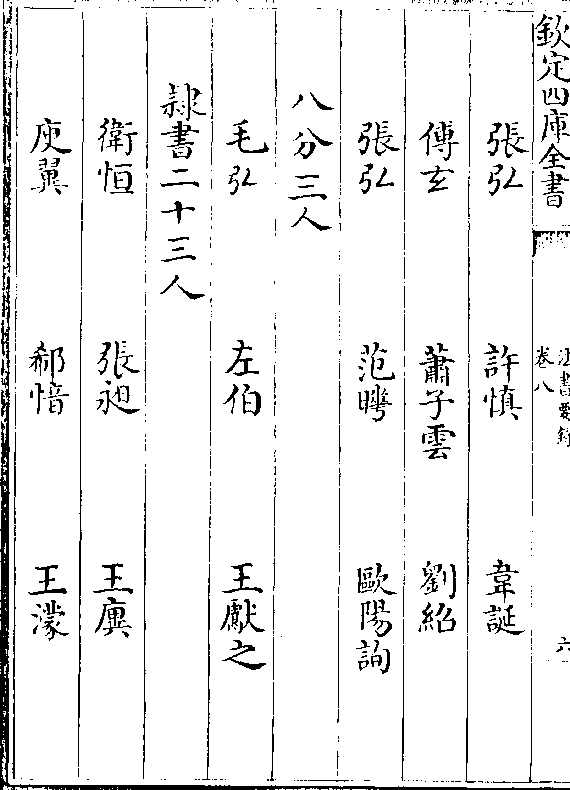 欽定四庫全書
法書要錄
卷八
六
張弘 許慎 韋誕
傅玄 蕭子雲 劉紹
張弘 范曄 歐陽詢
八分三人
毛弘 左伯 王獻之
隸書二十三人
衛恒 張昶 王廙
庾翼 郗愔 王濛